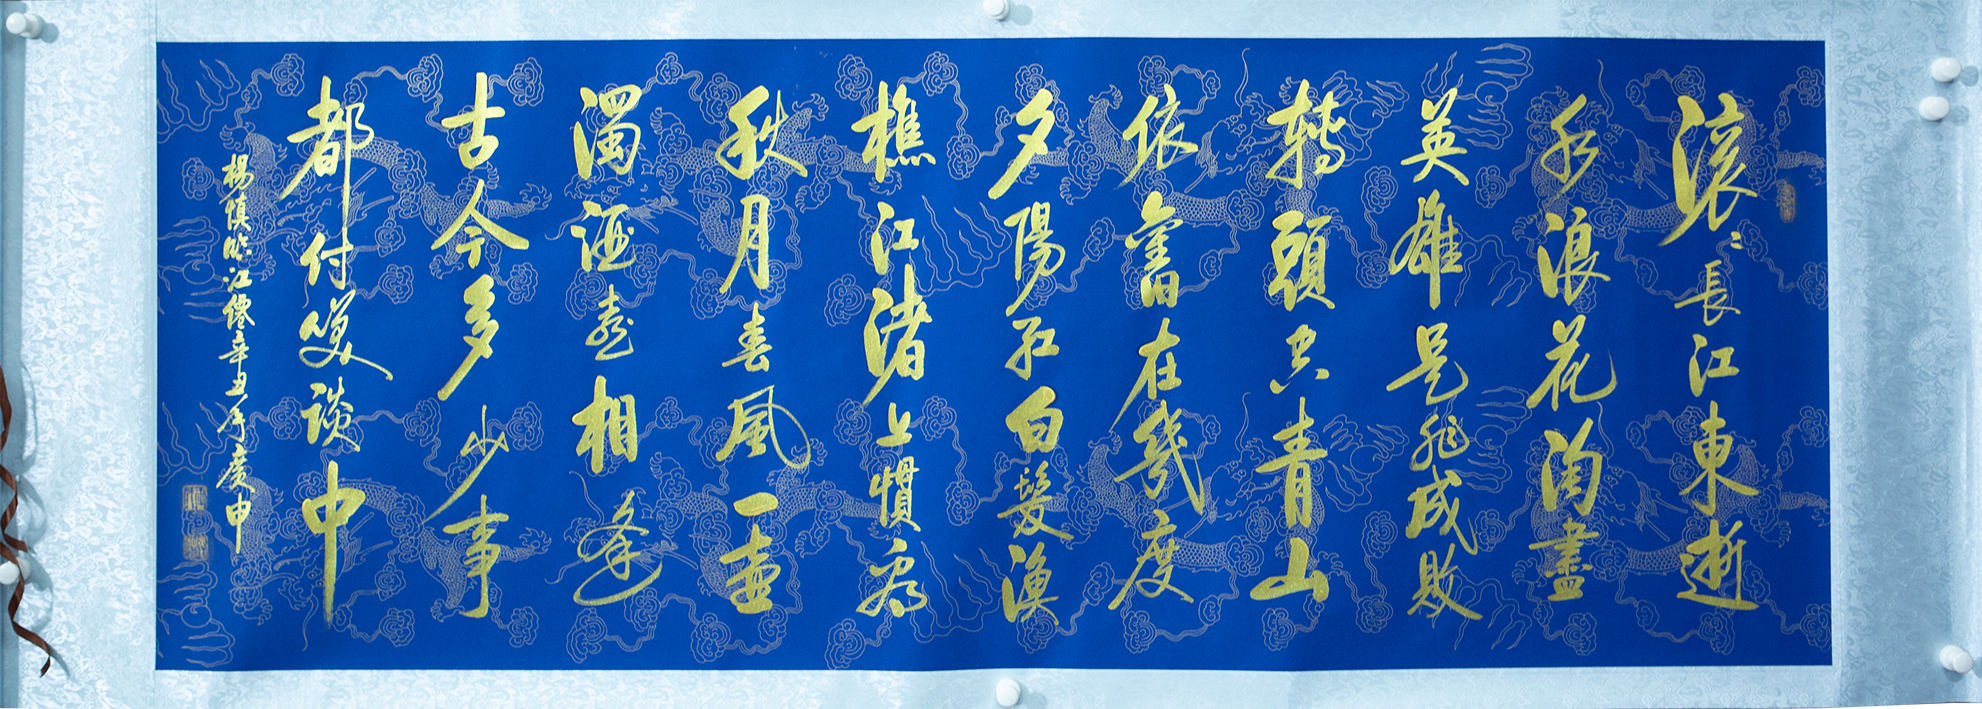 滚〻長江東逝
水浪花淘盡
英雄是非成敗
轉頭空青山
依舊在幾度
夕陽紅白髮漁
樵江渚上慣看
秋月春風一壺
濁酒喜相逢
古今多少事
都付笑談中
楊慎臨江僊辛丑年慶申